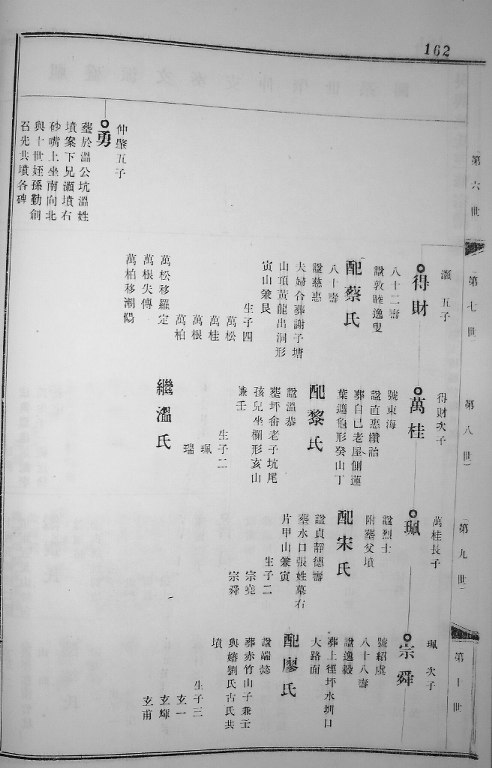 162
第六世
仲肇五子
勇
塟於溫公坑溫姓
墳案下兄灝墳右
砂嘴上坐南向北
與十世姪孫勤創
石先共墳各碑
第七世
灝五子
得財
八十二壽
諡敦睦逸叟
配蔡氏
八十壽
諡慈惠
夫婦合葬謝子塘
山頂黃龍出洞形
寅山兼艮
生子四
萬松
萬桂
萬根
萬柏
萬松移羅定
萬根失傳
萬柏移潮陽
第八世
得財次子
萬桂
號東海
諡直惠
葬自己老屋側蓮
葉遮龜形癸山丁
配黎氏
諡溫恭
塟坪畲老子坑尾
孩兒坐欄形亥山
兼壬
生子二
珮
瑞
繼溫氏
第九世
萬桂長子
珮
諡烈士
附塟父墳
配宋氏
諡貞靜德壽
塟水口張姓墓右
片甲山兼寅
生子二
宗堯
宗舜
第十世
珮次子
宗舜
號紹虞
八十八壽
諡逸毅
葬上徑坪水圳口
大路面
配廖氏
諡端懿
葬赤竹山子兼壬
與嫡劉氏古氏共
墳
生子三
玄一
玄輝
玄甫